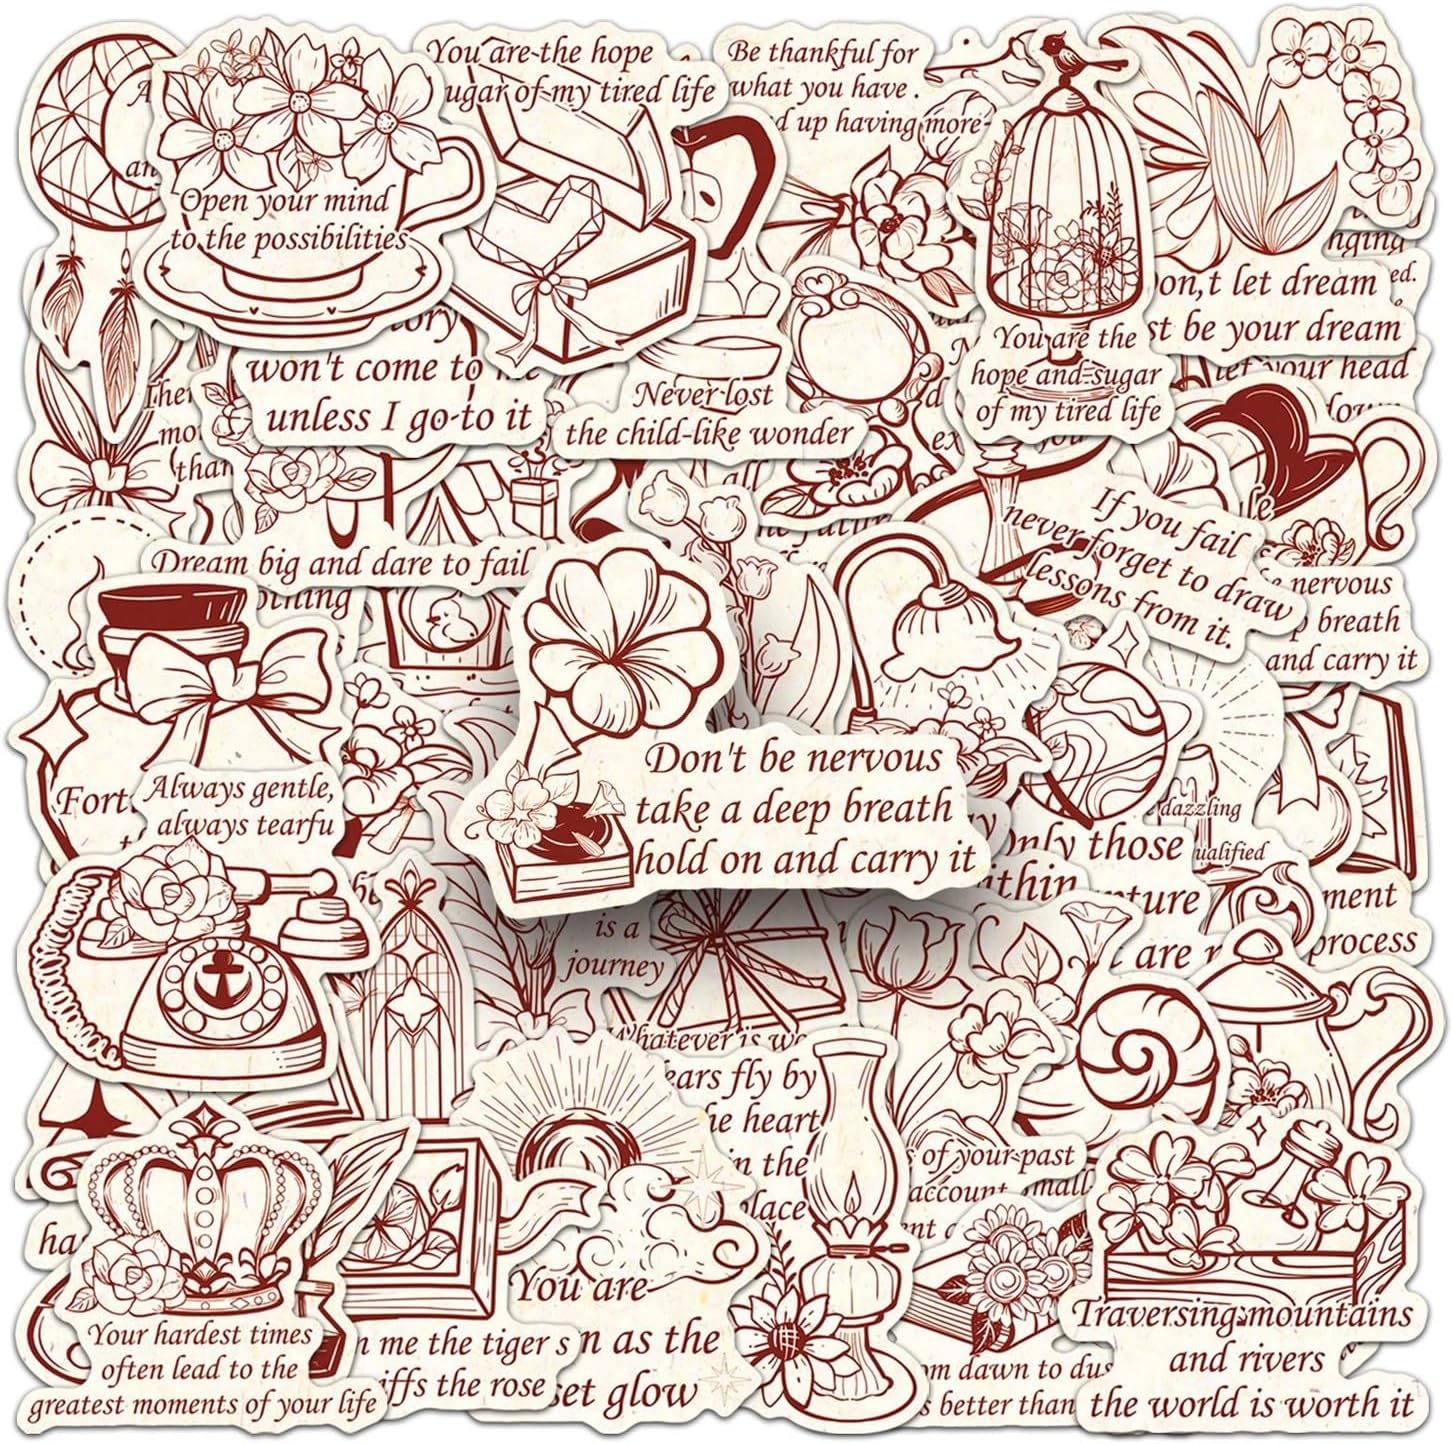 You are the hope
ugar of my tired life
Be thankful for
what you have .
d up having more
Open your mind
to the possibilities
on,t let dream
st be your dream
let your head
down
You are the
hope and sugar
of my tired life
won't come to me
unless I go to it
Never lost
the child-like wonder
If you fail
never forget to draw
lessons from it.
Dream big and dare to fail
nervous
breath
and carry it
Always gentle,
always tearfu
Don't be nervous
take a deep breath
hold on and carry it
dazzling
Only those
ualified
ment
process
is a
journey
Whatever is
ears fly by
he heart
in the
place
of your past
account
small
You are
n as the
set glow
n me the tiger s
iffs the rose
Your hardest times
often lead to the
greatest moments of your life
om dawn to dus
s better than
Traversing mountains
and rivers
the world is worth it